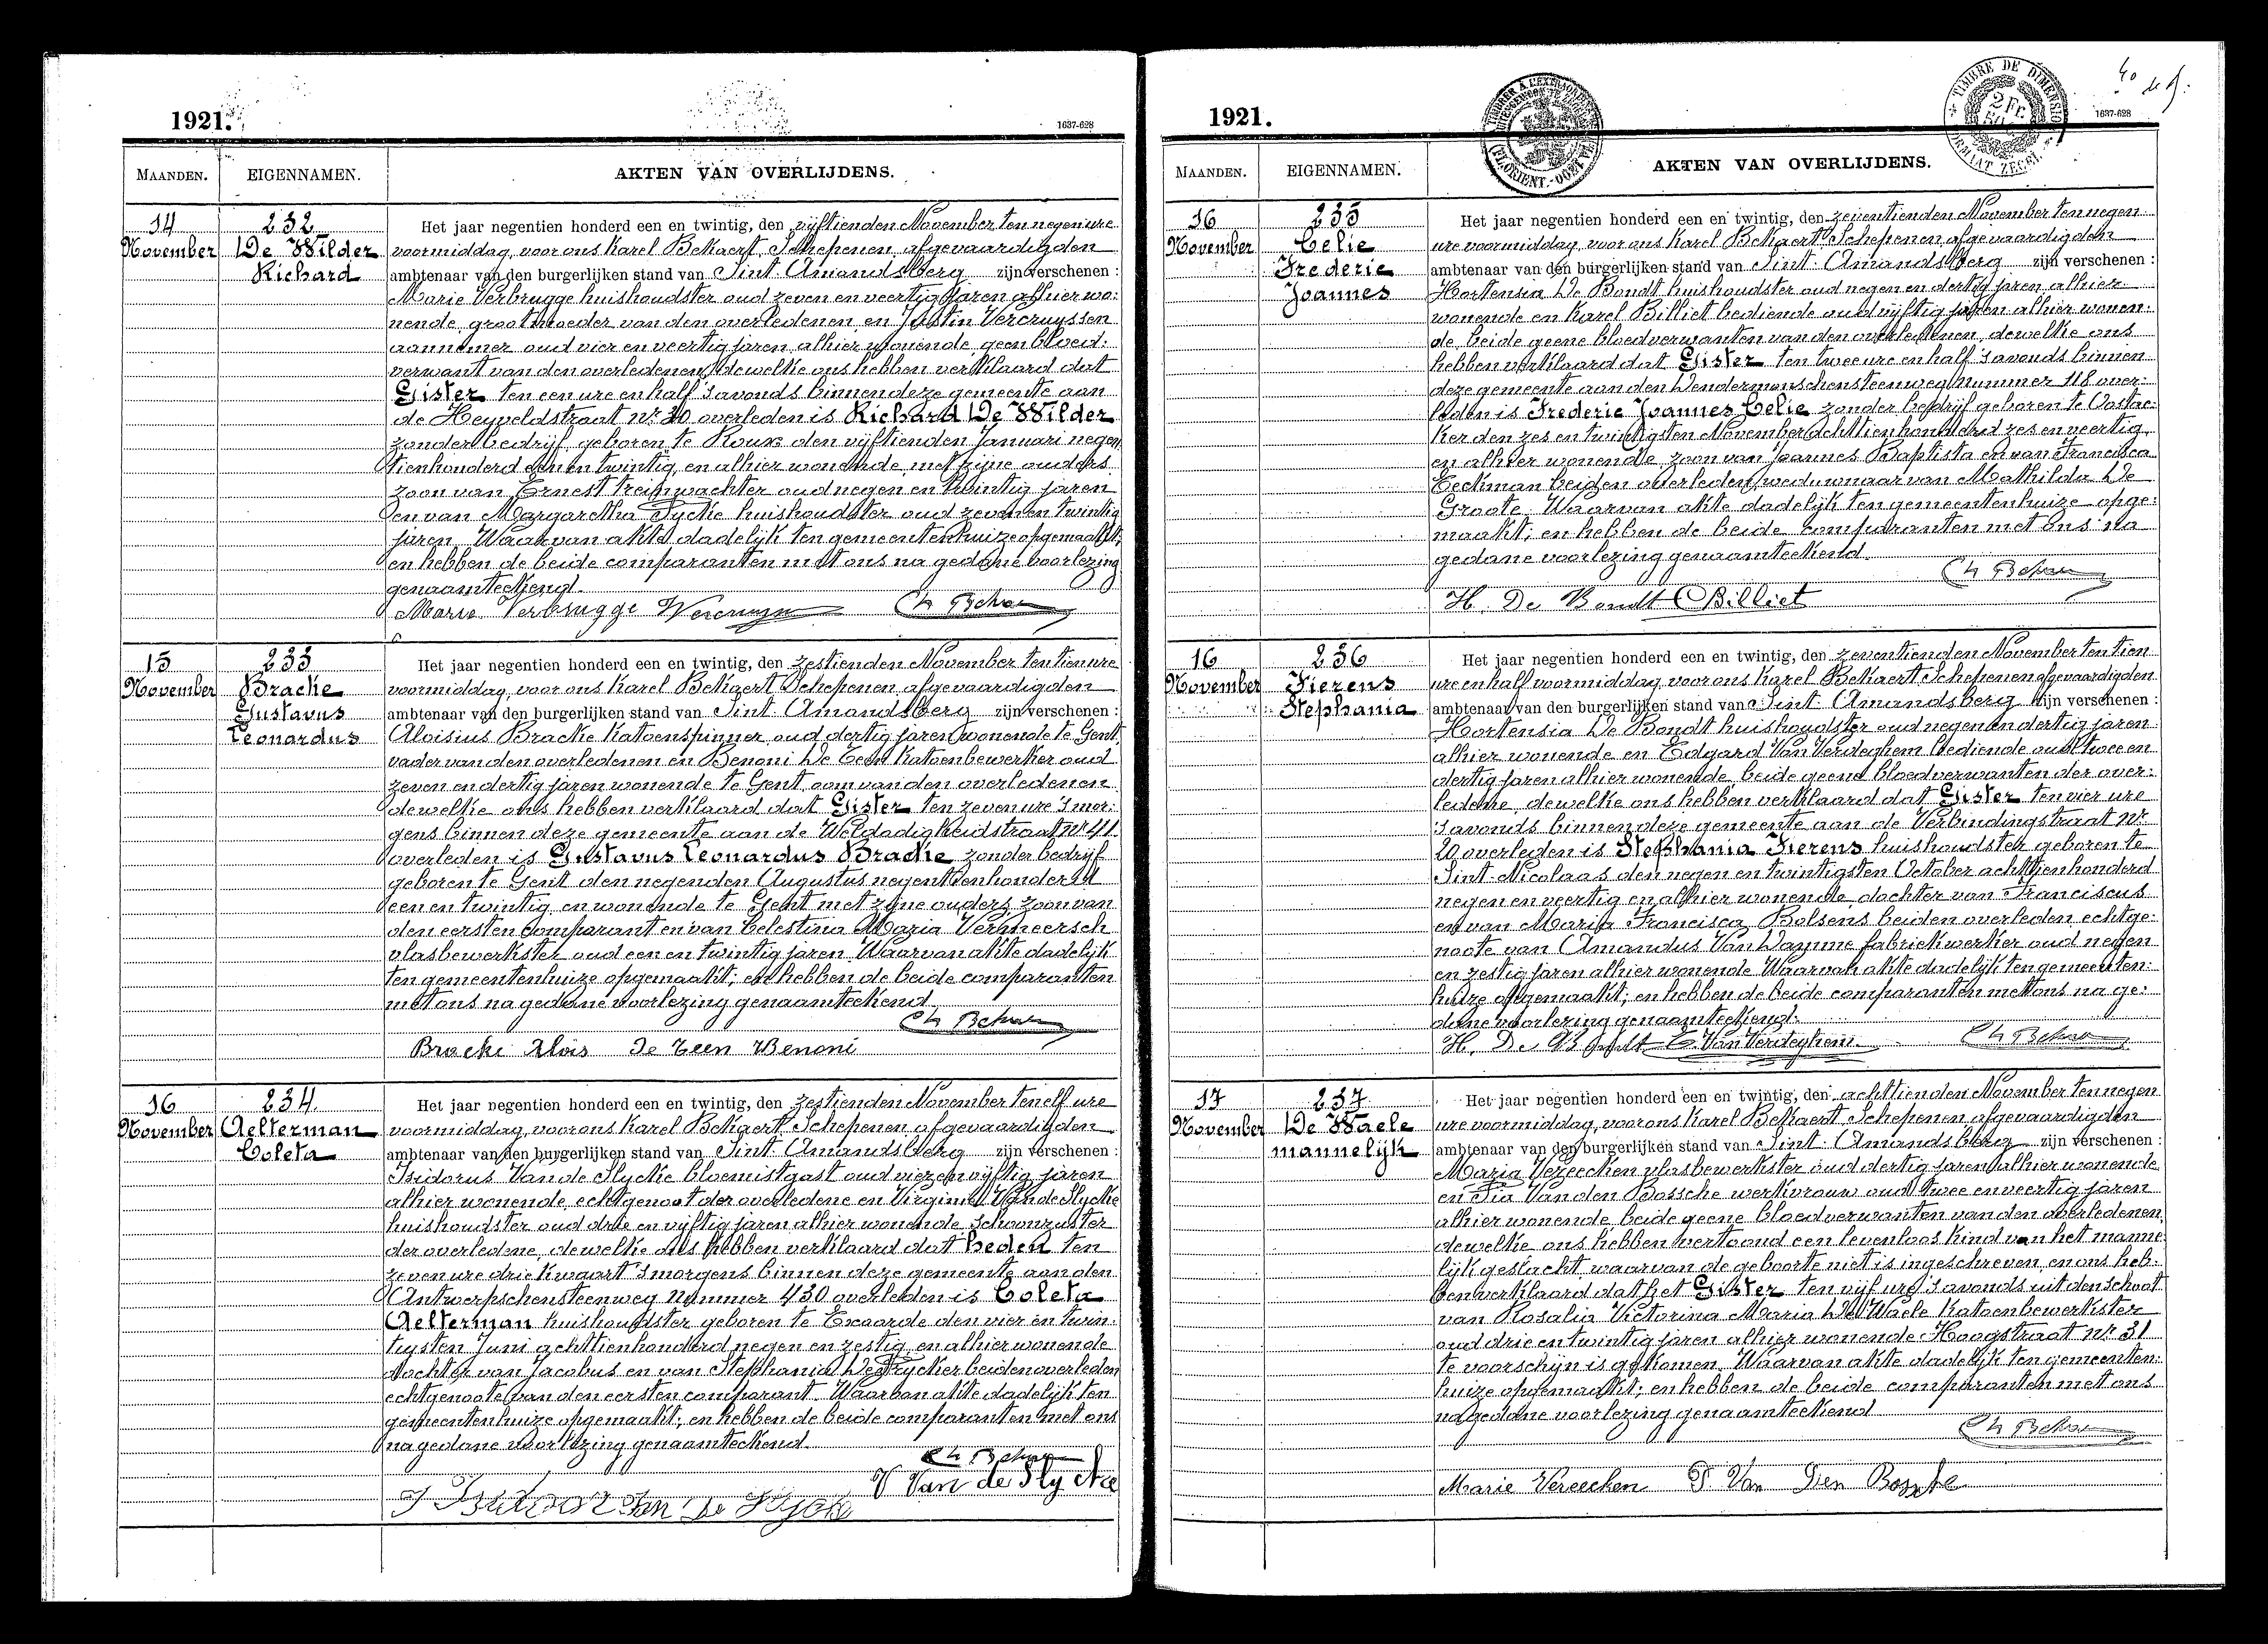 1921.
1637-628
MAANDEN.
EIGENNAMEN.
AKTEN VAN OVERLIJDENS.
14
November
232
De Wilder
Richard
Het jaar negentien honderd een en twintig, den vijftienden November ten negen ure
voormiddag, voor ons Karel Bekaert, Schepenen, afgevaardigden
ambtenaar van den burgerlijken stand van Sint Amandsberg zijn verschenen :
Marie Verbrugge huishoudster oud zeven en veertig jaren alhier wo:
nende, grootmoeder van den overledenen, en Justin Vercruyssen
aannemer oud vier en veertig jaren, alhier wonende geen bloed:
verwant van den overledenen, dewelke ons hebben verklaard dat
Gister ten een ure en half 's avonds binnen deze gemeente aan
de Heyveldstraat nr 20 overleden is Richard De Wilder
zonder bedrijf geboren te Roux den vijftienden Januari negen
tienhonderd een en twintig, en alhier wonende met zijne ouders
zoon van Ernest treinwachter oud negen en twintig jaren
en van Margaretha Sycke huishoudster oud zeven en twintig
jaren. Waarvan akte dadelijk ten gemeentenhuize opgemaakt;
en hebben de beide comparanten met ons na gedane voorlezing
genaamteekend.
Marie Verbrugge Vercruyssen Ch Bekaert
15
November
233
Bracke
Gustavus
Leonardus
Het jaar negentien honderd een en twintig, den zestienden November ten tien ure
voormiddag, voor ons Karel Bekaert Schepenen, afgevaardigden
ambtenaar van den burgerlijken stand van Sint Amandsberg zijn verschenen :
Aloisius Bracke Katoenspinner oud dertig jaren wonende te Gent,
vader van den overledenen en Benoni De Teen Katoenbewerker oud
zeven en dertig jaren wonende te Gent oom van den overledenen
dewelke ons hebben verklaard dat Gister ten zeven ure 's mor:
gens binnen deze gemeente aan de Weldadigheidstraat nr 41
overleden is Gustavus Leonardus Bracke zonder bedrijf
geboren te Gent den negenden Augustus negentienhonderd
een en twintig, en wonende te Gent met zijne ouders, zoon van
den eersten comparant en van Celestina Maria Vermeersch
vlasbewerkster oud een en twintig jaren. Waarvan akte dadelijk
ten gemeentenhuize opgemaakt; en hebben de beide comparanten
met ons na gedane voorlezing genaamteekend.
Ch Bekaert
Bracke Alois De Teen Benoni
16
November
234
Aelterman
Coleta
Het jaar negentien honderd een en twintig, den zestienden November ten elf ure
voormiddag, voor ons Karel Bekaert, Schepenen, afgevaardigden
ambtenaar van den burgerlijken stand van Sint Amandsberg zijn verschenen :
Isidorus Van de Slycke bloemistgast oud vier en vijftig jaren
alhier wonende, echtgenoot der overledene en Virginie Van de Slycke
huishoudster oud drie en vijftig jaren alhier wonende schoonzuster
der overledene, dewelke ons hebben verklaard dat heden ten
zeven ure drie kwaart 's morgens binnen deze gemeente aan den
Antwerpschensteenweg nummer 430 overleden is Coleta
Aelterman huishoudster geboren te Exaarde den vier en twin:
tigsten Juni achttienhonderd negen en zestig, en alhier wonende
dochter van Jacobus en van Stephania De Frycker beiden overleden
echtgenoote van den eersten comparant. Waarvan akte dadelijk ten
gemeentenhuize opgemaakt; en hebben de beide comparanten met ons
na gedane voorlezing genaamteekend.
Ch Bekaert
V Van de Slycke
Isidoor Van De Slycke
1921.
TIMBRE DE DIMENSION
2 FR
1637-628
MAANDEN.
EIGENNAMEN.
AKTEN VAN OVERLIJDENS.
16
November
235
Celie
Frederic
Joannes
Het jaar negentien honderd een en twintig, den zeventienden November ten negen
ure voormiddag, voor ons Karel Bekaert, Schepenen, afgevaardigden
ambtenaar van den burgerlijken stand van Sint Amandsberg zijn verschenen :
Hortensia De Bondt huishoudster oud negen en dertig jaren, alhier
wonende en Karel Billiet bediende oud vijftig jaren alhier wonen:
de, beide geene bloedverwanten van den overledenen, dewelke ons
hebben verklaard dat Gister ten twee ure en half 's avonds binnen
deze gemeente aan den Dendermonschensteenweg nummer 118 over:
leden is Frederic Joannes Celie zonder bedrijf geboren te Oostac:
ker den zes en twintigsten November achttienhonderd zes en veertig,
en alhier wonende, zoon van Joannes Baptista en van Francisca
Eeckman beiden overleden, weduwnaar van Mathilda De
Groote. Waarvan akte dadelijk ten gemeentenhuize opge:
maakt; en hebben de beide comparanten met ons na
gedane voorlezing genaamteekend.
Ch Bekaert
H. De Bondt C Billiet
16
November
236
Fierens
Stephania
Het jaar negentien honderd een en twintig, den zeventienden November ten tien
ure en half voormiddag, voor ons Karel Bekaert Schepenen afgevaardigden
ambtenaar van den burgerlijken stand van Sint Amandsberg zijn verschenen :
Hortensia De Bondt huishoudster oud negen en dertig jaren
alhier wonende en Edgard Van Verdeghem bediende oud twee en
dertig jaren alhier wonende, beide geene bloedverwanten der over:
ledene, dewelke ons hebben verklaard dat Gister ten vier ure
's avonds binnen deze gemeente aan de Verbindingstraat nr
20 overleden is Stephania Fierens huishoudster geboren te
Sint Nicolaas den negen en twintigsten October achttienhonderd
negen en veertig en alhier wonende, dochter van Franciscus
en van Maria Francisca Bolsens beiden overleden, echtge:
noote van Amandus Van Damme fabriekwerker oud negen
en zestig jaren alhier wonende. Waarvan akte dadelijk ten gemeenten:
huize opgemaakt; en hebben de beide comparanten met ons na ge:
dane voorlezing genaamteekend.
H. De Bondt E. Van Verdeghem Ch Bekaert
17
November
237
De Waele
mannelijk
Het jaar negentien honderd een en twintig, den achttienden November ten negen
ure voormiddag, voor ons Karel Bekaert, Schepenen, afgevaardigden
ambtenaar van den burgerlijken stand van Sint Amandsberg zijn verschenen :
Maria Vereecken vlasbewerkster oud dertig jaren alhier wonende
en Pia Van den Bossche werkvrouw oud twee en veertig jaren
alhier wonende beide geene bloedverwanten van den overledenen,
dewelke ons hebben vertoond een levenloos kind van het manne
lijk geslacht, waarvan de geboorte niet is ingeschreven, en ons heb:
ben verklaard dat het Gister ten vijf ure 's avonds uit den schoot
van Rosalia Victorina Maria De Waele Katoenbewerkster
oud drie en twintig jaren alhier wonende Hoogstraat nr 31
te voorschijn is gekomen. Waarvan akte dadelijk ten gemeenten:
huize opgemaakt; en hebben de beide comparanten met ons
na gedane voorlezing genaamteekend
Ch Bekaert
Marie Vereecken P Van Den Bossche